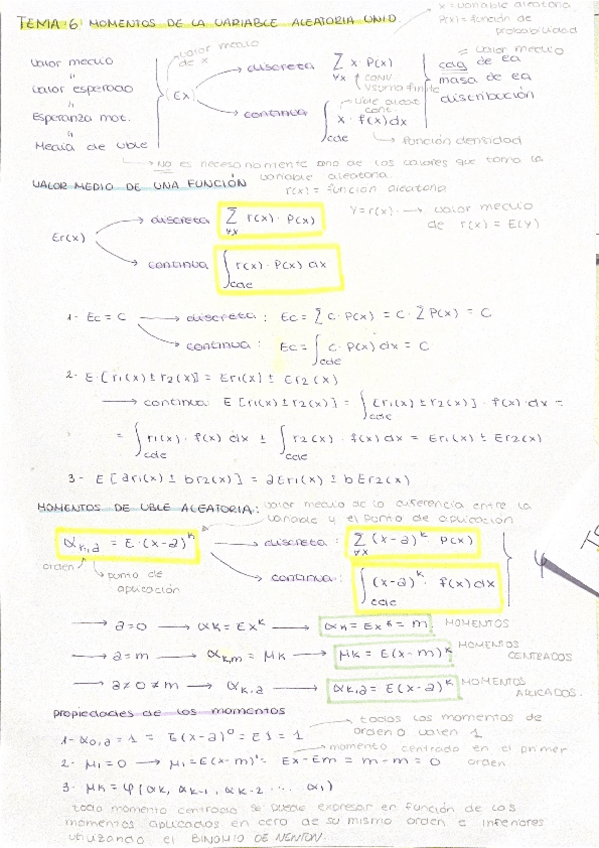 TEMA 6 MOMENTOS DE LA VARIABLE ALEATORIA UNID.
x = variable aleatoria
P(x) = función de probabilidad
valor medio
"
valor esperado
"
Esperanza mat.
"
Media de vble
Ex
valor medio de x
discreta ∑∀x x · P(x)
continua ∫cdc x · f(x)dx
función densidad
= valor medio
cdg de ea
masa de ea
distribución
No es necesariamente uno de los valores que toma la
variable aleatoria.
VALOR MEDIO DE UNA FUNCIÓN
r(x) = función aleatoria
Er(x)
discreta ∑∀x r(x) · P(x)
continua ∫cdc r(x) · P(x) dx
Y = r(x) → valor medio
de r(x) = E(Y)
1- Ec = C → discreta : Ec = ∑ C · P(x) = C · ∑ P(x) = C
continua : Ec = ∫cdc C · P(x) dx = C
2- E · [r1(x) ± r2(x)] = Er1(x) ± Er2(x)
→ continua E [r1(x) ± r2(x)] = ∫cdc [r1(x) ± r2(x)] · f(x) · dx =
= ∫cdc r1(x) · f(x) dx ± ∫cdc r2(x) · f(x) dx = Er1(x) ± Er2(x)
3- E [ar1(x) ± br2(x)] = aEr1(x) ± bEr2(x)
MOMENTOS DE VBLE ALEATORIA: valor medio de la diferencia entre la
variable y el punto de aplicación
αk,a = E · (x-a)^k
orden
punto de aplicación
discreta : ∑∀x (x-a)^k P(x)
continua : ∫cdc (x-a)^k · f(x)dx
→ a=0 → αk = Ex^k → αk = Ex^k = m. MOMENTOS
→ a=m → αk,m = μk → μk = E(x-m)^k MOMENTOS CENTRADOS
→ a≠0≠m → αk,a → αk,a = E(x-a)^k MOMENTOS APLICADOS.
propiedades de los momentos
1- α0,a = 1 = E(x-a)^0 = E1 = 1
todos los momentos de
orden 0 valen 1
2- μ1=0 → μ1=E(x-m)^1 = Ex-Em = m-m = 0
momento centrado en el primer
orden
3- μk = φ(αk, αk-1, αk-2 ... α1)
todo momento centrado se puede expresar en función de los
momentos aplicados en cero de su mismo orden e inferiores
utilizando el BINOMIO DE NEWTON.